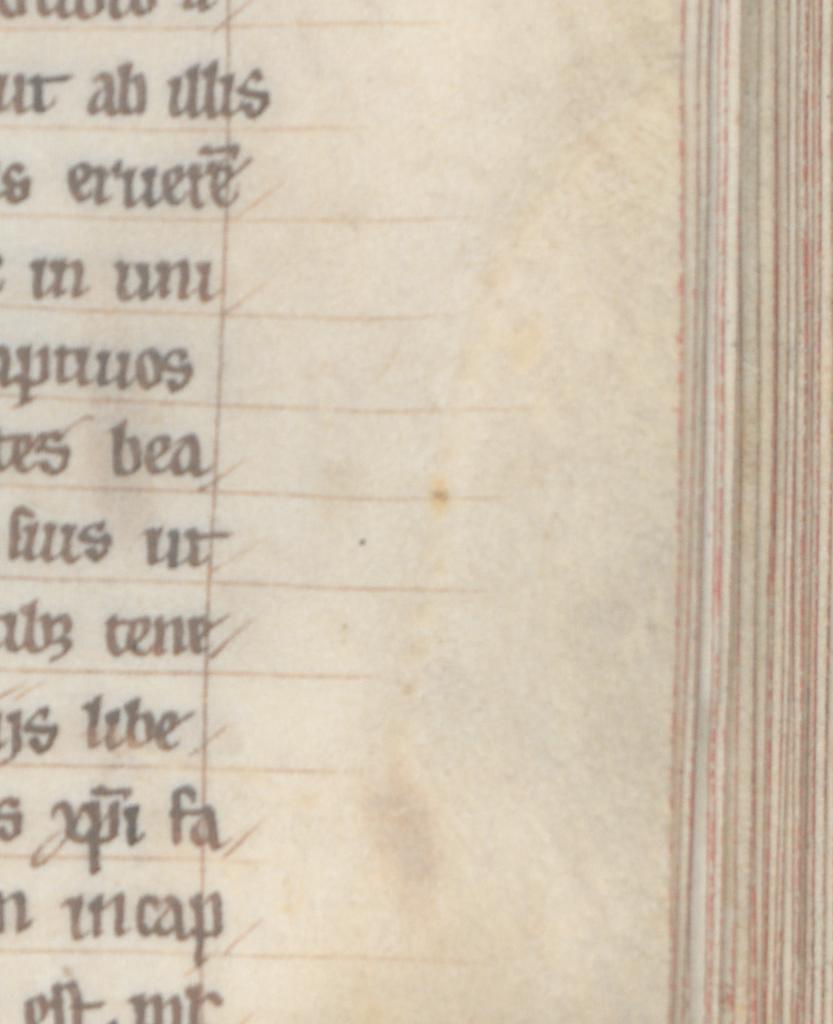 ut ab illis
s eruerē
in uni
aptiuos
tes bea
suis ut
ibꝫ tene
ijs libe
s xp̄i fa
n incap
est mr̄